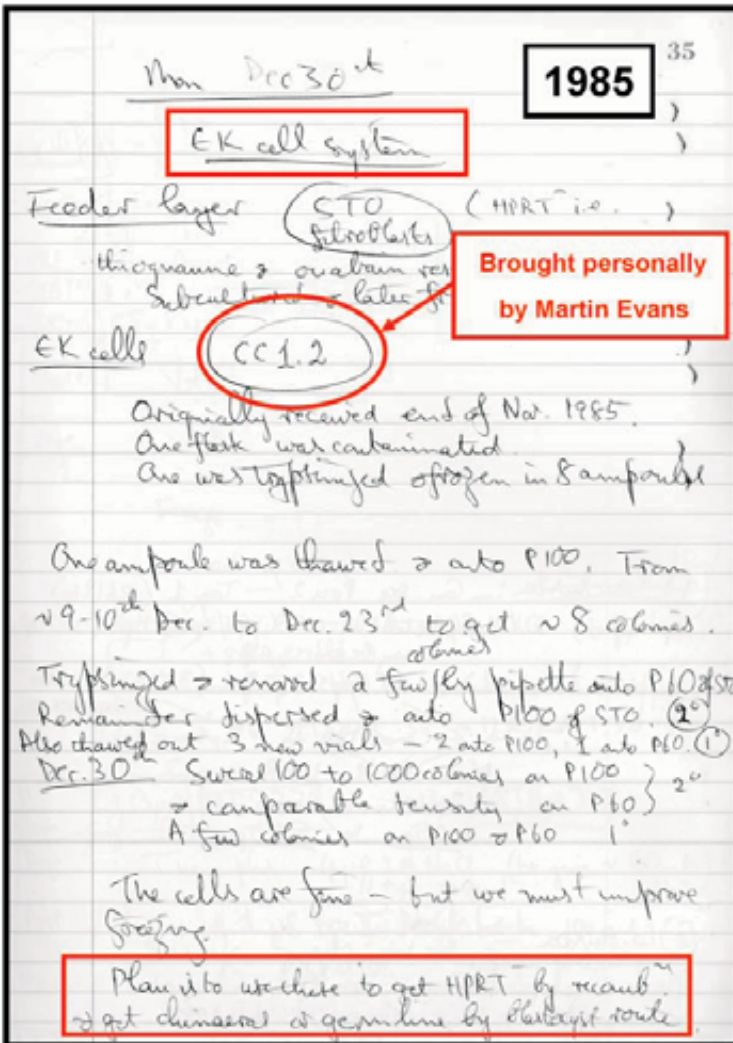 35
Mon Dec 30th
1985
EK cell system
Feeder layer STO (HPRT⁻ i.e.
fibroblasts
thioguanine & ouabain res
Subcultured & later fr
Brought personally
by Martin Evans
EK cells CC1.2
Originally received end of Nov. 1985.
One flask was contaminated.
One was trypsinized & frozen in 8 ampoules
One ampoule was thawed & onto P100. From
~9-10th Dec. to Dec. 23rd to get ~8 colonies.
colonies
Trypsinized & removed a few by pipette onto P60 of STO
Remainder dispersed & onto P100 of STO. 2°
Also thawed out 3 new vials – 2 onto P100, 1 onto P60. 1°
Dec. 30th Several 100 to 1000 colonies on P100
& comparable density on P60 } 2°
A few colonies on P100 & P60 1°
The cells are fine – but we must improve
freezing.
Plan is to use these to get HPRT⁻ by recombn.
& get chimaeras or germline by blastocyst route